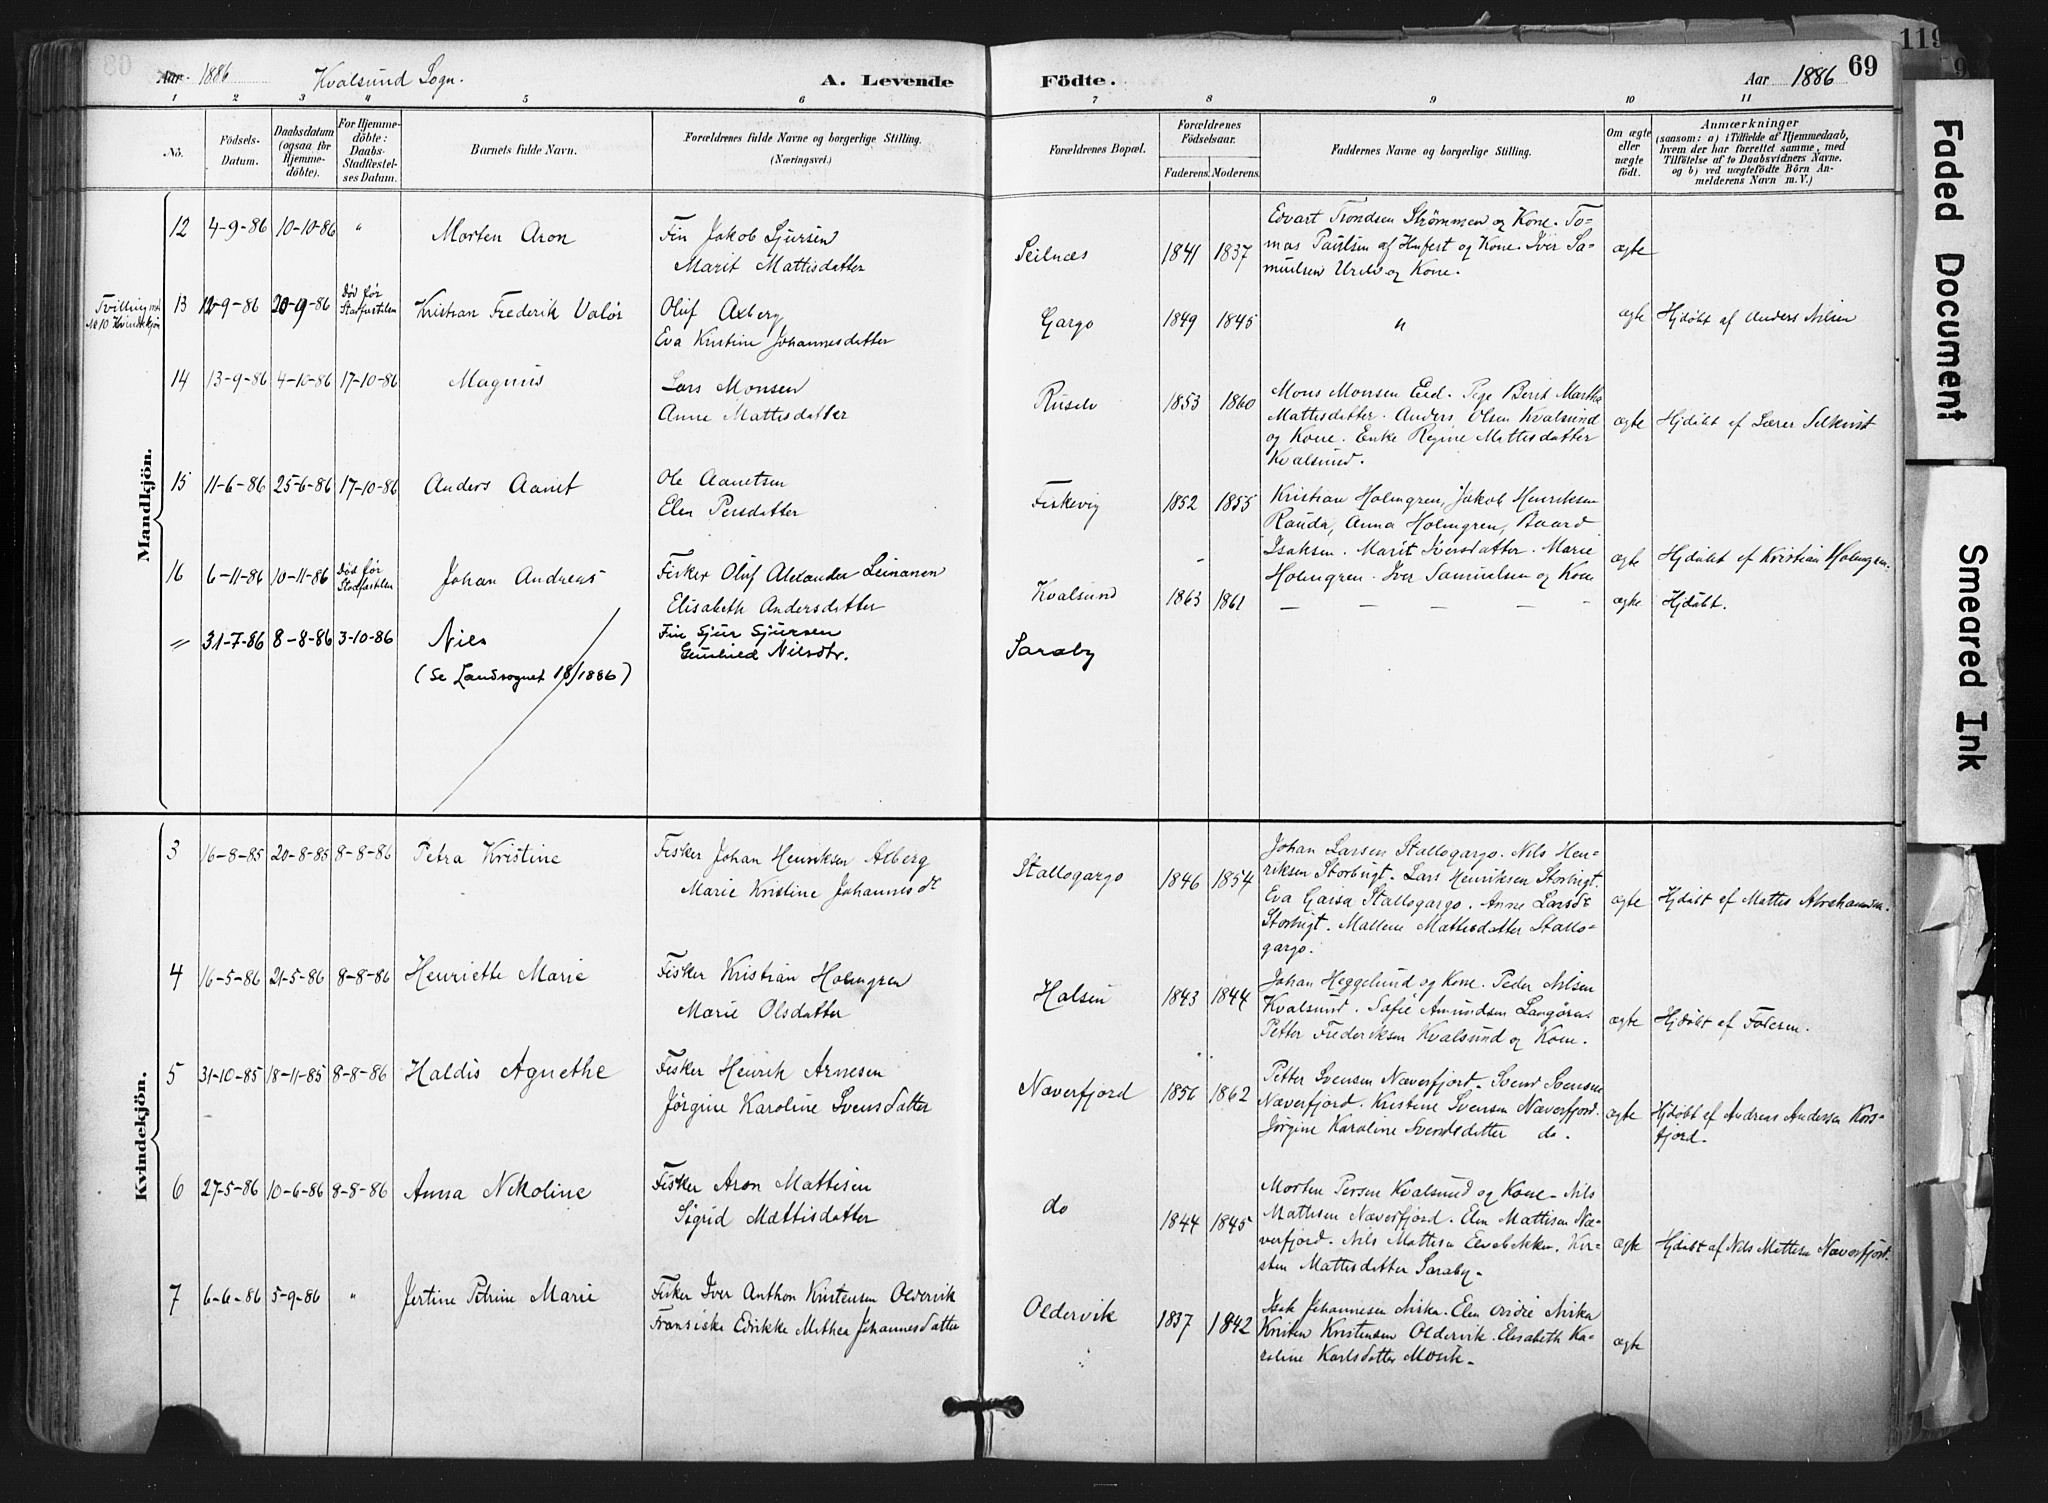 80
Aar 1886
Kvalsund Sogn.
A. Levende
Födte.
Aar 1886
69
119
1 2 3 4 5 6 7 8 9 10 11
No.
Födsels-
Datum.
Daabsdatum
(ogsaa for
Hjemme-
döbte).
For Hjemme-
döbte:
Daabs-
Stadfæstel-
ses Datum.
Barnets fulde Navn.
Forældrenes fulde Navne og borgerlige Stilling.
(Næringsvei.)
Forældrenes Bopæl.
Forældrenes
Födselsaar.
Faderens. Moderens.
Faddernes Navne og borgerlige Stilling.
Om ægte
eller
uægte
födt.
Anmærkninger
(saasom: a) i Tilfælde af Hjemmedaab,
hvem der har forrettet samme, med
Tilföielse af to Daabsvidners Navne.
og b) ved uægtefödte Börn An-
melderens Navn m. V.)
Mandkjön.
12 4-9-86 10-10-86 "
Morten Aron
Fin Jakob Sjursen
Marit Mattisdatter
Seilnæs
1841 1837
Edvart Trondsen Strømmen og Kone. To-
mas Paulsen af Hmfest og Kone. Iver Sa-
muelsen og Kone.
ægte
Tvilling
No 10 Kvindekjøn
13 12-9-86 20-9-86
Død før
Stadfæstelsen
Kristian Frederik Valør
Oluf Axberg
Eva Kristine Johannesdatter
Gargo
1849 1845
"
ægte
Hjdøbt af Anders Nilsen
14 13-9-86 4-10-86 17-10-86
Magnus
Lars Monsen
Anne Mattisdatter
Ruselv
1853 1860
Mons Monsen Eid. Pige Berit Martha
Mattisdatter. Anders Olsen Kvalsund
og Kone. Enke Regine Mattisdatter
Kvalsund.
ægte
Hjdøbt af Lærer
15 11-6-86 25-6-86 17-10-86
Anders Aanet
Ole Aanetsen
Elen Persdatter
Fiskevig
1852 1855
Kristian Holmgren, Jakob Henriksen
Rauda, Anna Holmgren, Baard
Isaksen. Marit Iversdatter. Marie
Holmgren. Iver Samuelsen og Kone
ægte
Hjdøbt af Kristian Holmgren.
16 6-11-86 10-11-86
Død før
Stadfæstelsen
Johan Andreas
Fisker Oluf Alexander Leinanen
Elisabeth Andersdatter
Kvalsund
1863 1861
— — — — -
ægte
Hjdøbt.
" 31-7-86 8-8-86 3-10-86
Niels
(Se Landsognet 18/1886)
Fin Sjur Sjursen
Gunhild Nilsdtr.
Saraby
Kvindekjön.
3 16-8-85 20-8-85 8-8-86
Petra Kristine
Fisker Johan Henriksen Alberg
Marie Kristine Johannesdr
Stallogargo
1846 1854
Johan Larsen Stallogargo. Nils Hen-
riksen Storbugt. Lars Henriksen Storbugt.
Eva Gaisa Stallogargo. Anne Larsdr
Storbugt. Mallene Mattisdatter Stallo-
gargo.
ægte
Hjdøbt af Mattis Abrahamsen.
4 16-5-86 21-5-86 8-8-86
Henriette Marie
Fisker Kristian Holmgren
Marie Olsdatter
Halsen
1843 1844
Johan Heggelund og Kone. Peder Nilsen
Kvalsund. Sofie Amundsen Langøren
Petter Frederiksen Kvalsund og Kone.
ægte
Hjdøbt af Faderen.
5 31-10-85 18-11-85 8-8-86
Haldis Agnethe
Fisker Henrik Arnesen
Jørgine Karoline Svensdatter
Næverfjord
1856 1862
Petter Svensen Næverfjord. Svend Svensen
Næverfjord. Kristine Svensen Næverfjord.
Jørgine Karoline Svendsdatter do.
ægte
Hjdøbt af Andreas Andersen Kors-
fjord.
6 27-5-86 10-6-86 8-8-86
Anna Nikoline
Fisker Aron Mattisen
Sigrid Mattisdatter
do
1844 1845
Morten Persen Kvalsund og Kone. Nils
Mattisen Næverfjord. Elen Mattisen Næ-
verfjord. Nils Mattisen Elvebakken. Kir-
sten Mattisdatter Saraby.
ægte
Hjdøbt af Nils Mattisen Næverfjord.
7 6-6-86 5-9-86 "
Jertine Petrine Marie
Fisker Iver Anthon Kristensen Oldervik
Franziske Edrikke Mathea Johannesdatter
Oldervik
1837 1842
Isak Johannesen Mirka. Elen Mirka
Kristen Kristensen Oldervik. Elisabeth Ka-
roline Karlsdatter
ægte
Faded Document
Smeared Ink